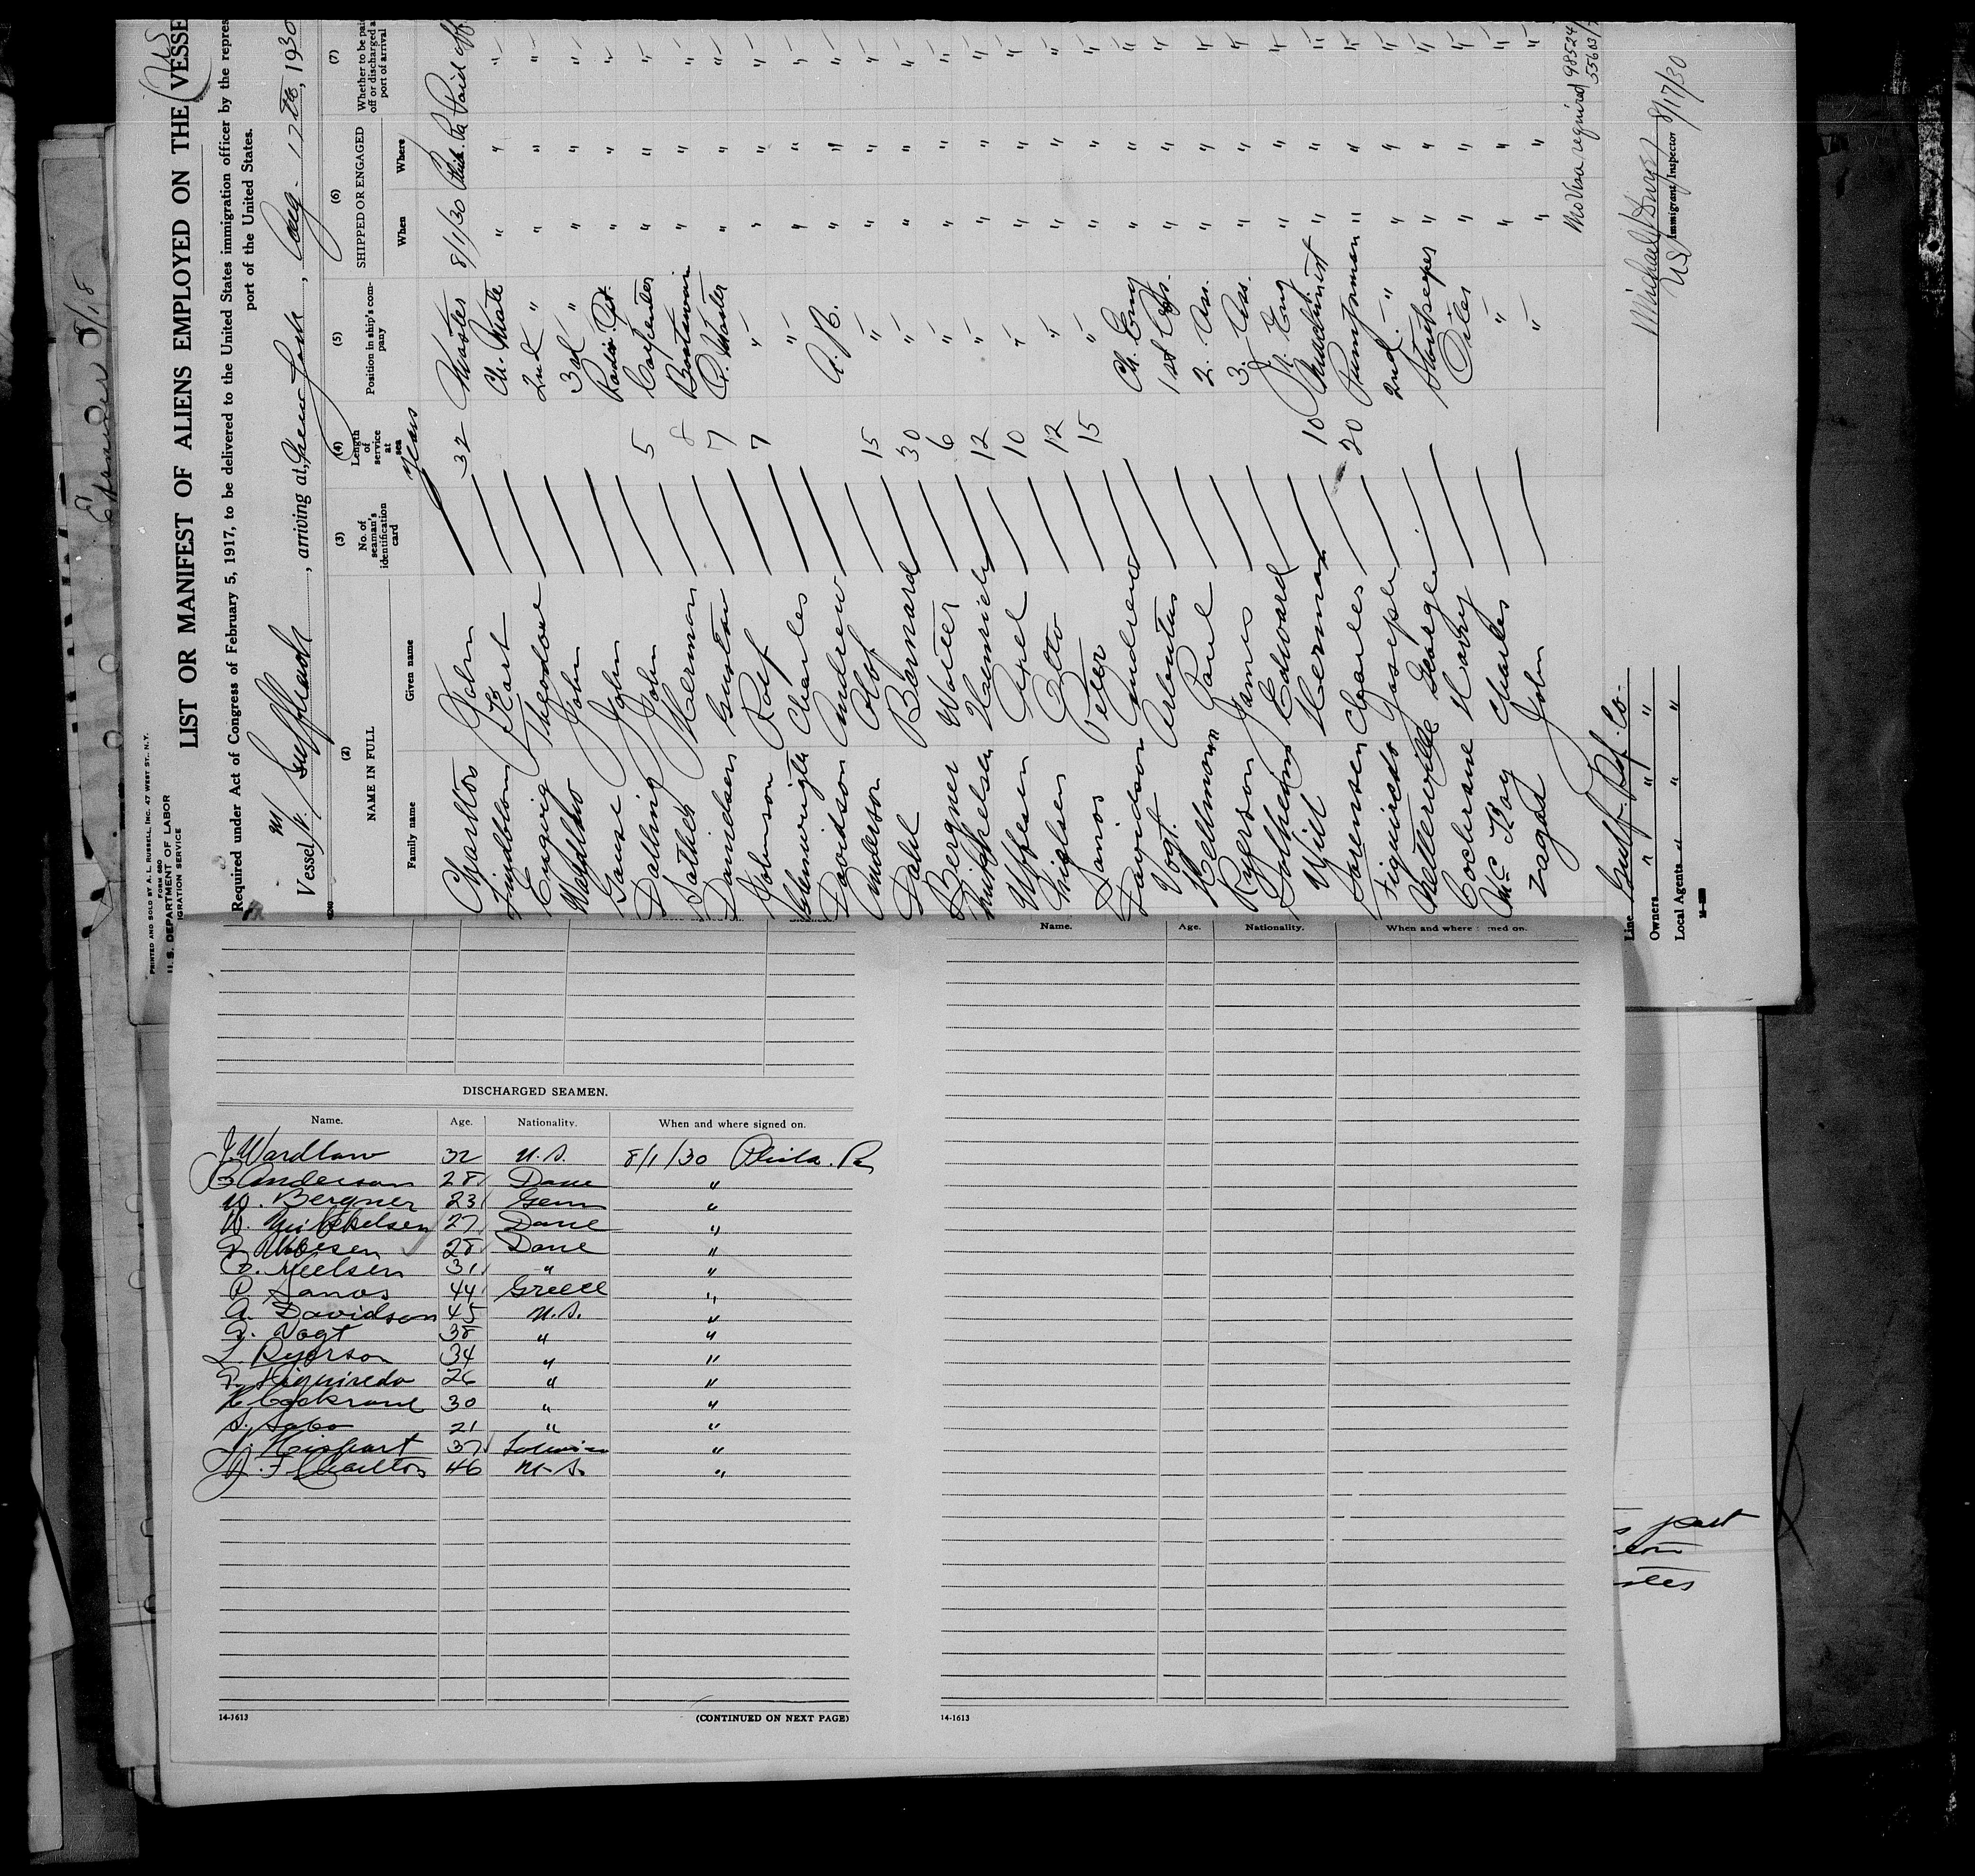 Expander 8/18
PRINTED AND SOLD BY A. L. RUSSELL, INC. 47 WEST ST., N.Y.
FORM 680
U. S. DEPARTMENT OF LABOR
IGRATION SERVICE
LIST OR MANIFEST OF ALIENS EMPLOYED ON THE VESSE
Required under Act of Congress of February 5, 1917, to be delivered to the United States immigration officer by the repres
port of the United States.
Vessel , arriving at New York , Aug. 17th, 1930
(2) (3) (4) (5) (6) (7)
NAME IN FULL No. of seaman's identification card Length of service at sea Position in ship's company SHIPPED OR ENGAGED Whether to be paid off or discharged at port of arrival
Family name Given name Years When Where
Charlton John 32 Master 8/1/30 Phila. Pa Paid off
Lindblom Kart Ch. Mate " " "
Theodore 2nd " " " "
Wardlaw John 3rd " " " "
Gause John Radio Opt. " " "
Dalling John 5 Carpenter " " "
Sather Herman 8 Boatswain " " "
Danielsen Gustav 7 Q. Master " " "
Johnson Rolf 7 " " " "
Charles " " " "
Davidson Andrew A. B. " " "
Anderson Olof 15 " " " "
Dahl Bernard 30 " " " "
Bergner Walter 6 " " " "
Mikkelsen Heinrich 12 " " " "
Axel 10 " " " "
Nielsen Otto 12 " " " "
Sanos Peter 15 " " " "
Davidson Andrew Ch. Eng " " "
Vogt Arbutus 1st Ass. " " "
Heldmann Paul 2. Ass. " " "
Ryerson James 3. Ass. " " "
Edward Eng " " "
Will Herman 10 Machinist " " "
Sorensen Charles 20 Pumpman " " "
Figuiredo Joseph 2nd " " " "
Netterville George Storekeeper " " "
Cochrane Harry Oiler " " "
McKay Charles " " " "
Zagast John " " " "
No Visa required 98524/
55603/
Immigrant Inspector 8/17/30
U S
Line Gulf Ref. Co.
Owners " " "
Local Agents " " "
DISCHARGED SEAMEN.
Name. Age. Nationality. When and where signed on.
J. Wardlaw 32 U.S. 8/1/30 Phila. Pa
B. Anderson 28 Dane "
W. Bergner 23 Germ "
H. Mikkelsen 27 Dane "
28 Dane "
O. Nielsen 31 " "
P. Sanos 44 Greece "
A. Davidson 45 U.S. "
A. Vogt 38 " "
J. Ryerson 34 " "
J. Figuiredo 26 " "
H Cockrane 30 " "
S. Sabo 21 " "
37 "
J. F. Charlton 46 U.S. "
14-1613 (CONTINUED ON NEXT PAGE)
Name. Age. Nationality. When and where ned on.
14-1613
past